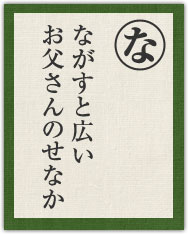 な
ながすと広い
お父さんのせなか